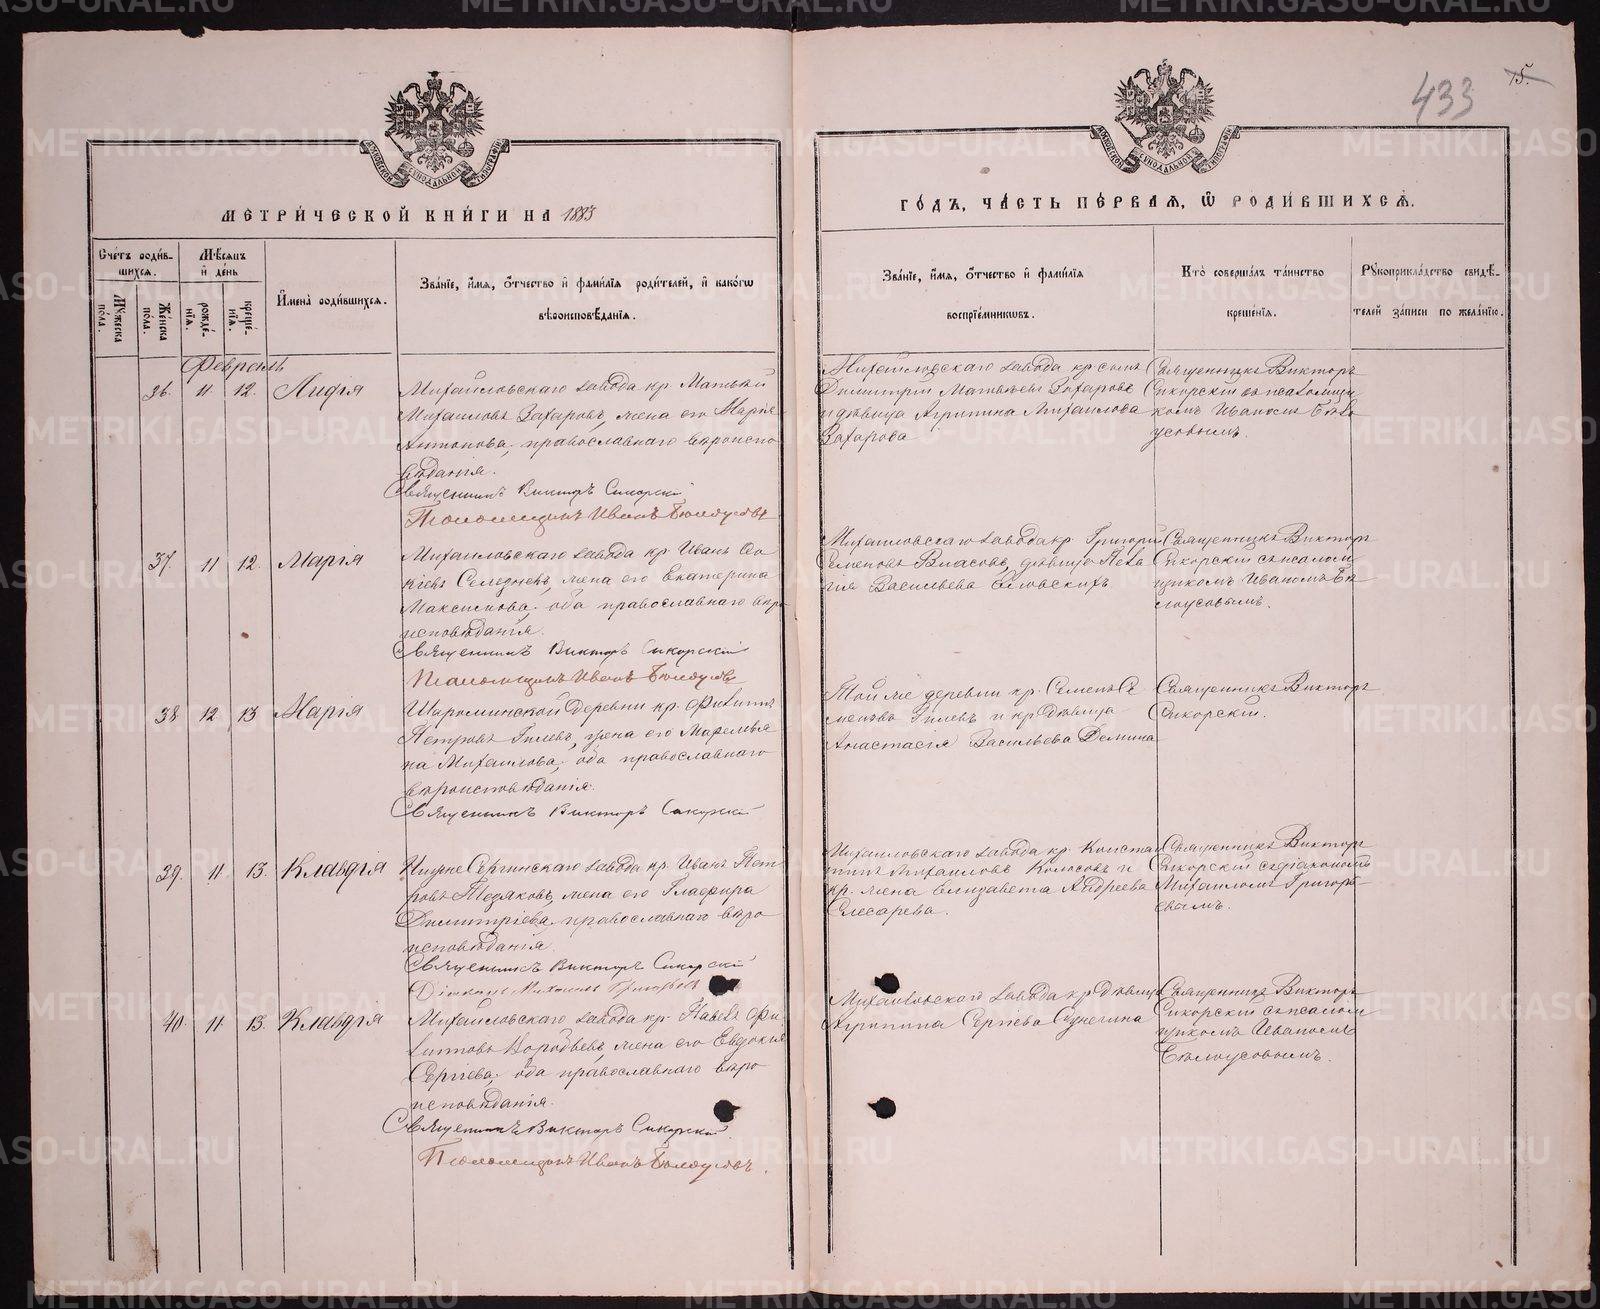 433
15.
МЕТРИ́ЧЕСКОЙ КНИ́ГИ НА 1883
ГО́ДЪ, ЧА́СТЬ ПЕ́РВАЯ, Ѿ РОДИ́ВШИХСЯ.
Сче́тъ роди́в-
шихся.
Мѣ́сяцъ
и де́нь
Му́жеска
по́ла.
Же́нска
по́ла.
рожде́-
нїя.
креще́-
нїя.
Имена̀ роди́вшихся.
Зва́нїе, и́мя, о́тчество и фами́лїя роди́телей, и како́гѡ
вѣроисповѣ́данїя.
Зва́нїе, и́мя, о́тчество и фами́лїя
воспрїе́мникѡвъ.
Кто̀ соверша́лъ та́инство
креще́нїя.
Рукоприкла́дство свидѣ́-
телей за́писи по жела́нїю.
Февраль
36. 11. 12. Лидія
Михайловскаго завода кр. Матвѣй
Михаиловъ Захаровъ, жена его Марія
Антонова, православнаго вѣроиспо
вѣданія.
Священникъ Викторъ Сикорскій
Псаломщикъ Иванъ Бѣлоусовъ
Михайловскаго завода кр. сынъ
Димитрій Матвѣевъ Захаровъ
и дѣвица Агрипина Михаилова
Захарова
Священникъ Викторъ
Сикорскій съ псаломщи
комъ Иваномъ Бѣло
усовымъ.
37. 11 12. Марія
Михаиловскаго завода кр. Иванъ
Селедневъ, жена его Екатерина
Максимова, оба православнаго вѣро-
исповѣданія.
Священникъ Викторъ Сикорскій
Псаломщикъ Иванъ Бѣлоусовъ
Михаиловскаго завода кр. Григорій
Семеновъ Власовъ, дѣвица Пела
гія Васильева
Священникъ Викторъ
Сикорскій съ псалом
щикомъ Иваномъ Бѣ
лоусовымъ.
38 12 13 Марія
Шароминской деревни кр. Филиппъ
Петровъ Гилевъ, жена его Маремья
на Михаилова, оба православнаго
вѣроисповѣданія.
Священникъ Викторъ Сикорскій
Той же деревни кр. Семенъ Се
меновъ Гилевъ и кр. дѣвица
Анастасія Васильева Демина
Священникъ Викторъ
Сикорскій.
39. 11. 13. Клавдія
Нижне Сергинскаго завода кр. Иванъ Пет
ровъ жена его Глафира
Димитріева, православнаго вѣро
исповѣданія.
Священникъ Викторъ Сикорскій
Діаконъ Михаилъ Григорьевъ
Михаиловскаго завода кр. Конста
нтинъ Михаиловъ Колосовъ и
кр. жена Елизавета Андреева
Слесарева.
Священникъ Викторъ
Сикорскій съ діакономъ
Михаиломъ Григорь-
евымъ.
40. 11. 13. Клавдія
Михайловскаго завода кр. Павелъ Фи
липповъ Воробьевъ, жена его Евдокія
Сергіева, оба православнаго вѣро
исповѣданія.
Священникъ Викторъ Сикорскій
Псаломщикъ Иванъ Бѣлоусовъ.
Михаиловскаго завода кр. дѣвица
Агрипина Сергіева
Священникъ Викторъ
Сикорскій съ псалом
щикомъ Иваномъ
Бѣлоусовымъ.